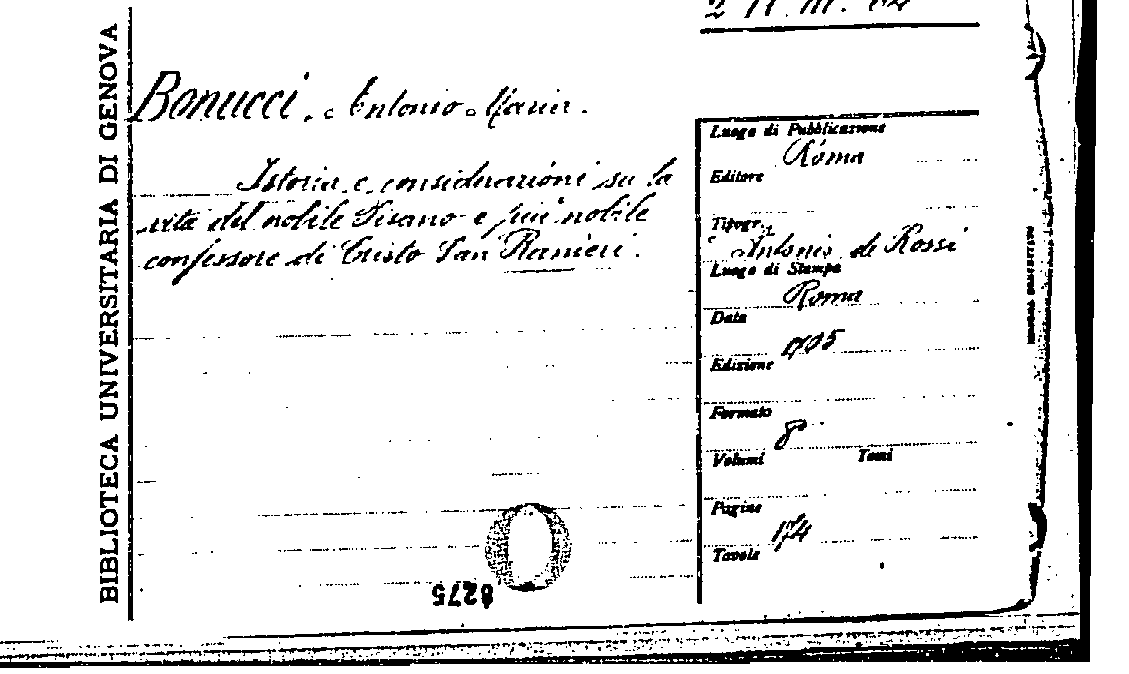 BIBLIOTECA UNIVERSITARIA DI GENOVA
Bonucci, Antonio Maria.
Istoria e considerazioni su la
vita del nobile Pisano e più nobile
confessore di Cristo San Ranieri.
Luogo di Pubblicazione
Roma
Editore
Tipogr.
Antonio de Rossi
Luogo di Stampa
Roma
Data
1705
Edizione
Formato
8º
Volumi Tomi
Pagine
174
Tavole
8275